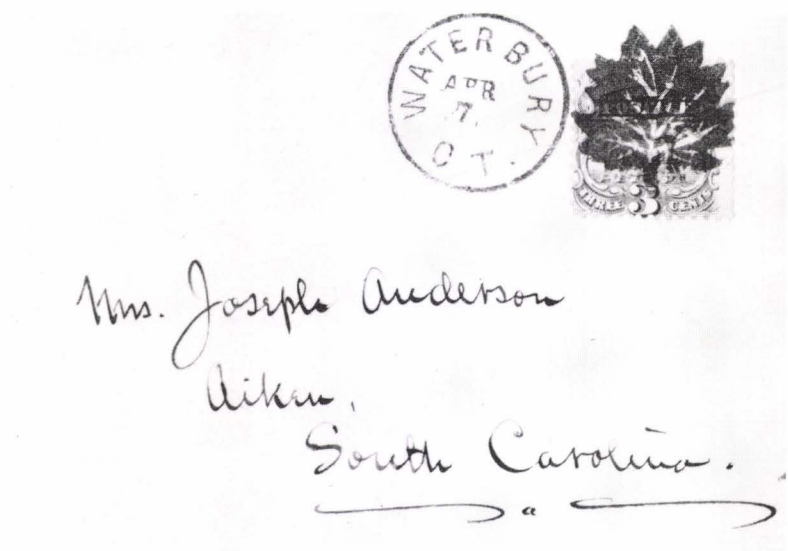 WATERBURY
APR
7.
CT.
THREE 3 CENTS
Mrs. Joseph Anderson
Aiken,
South Carolina.
a